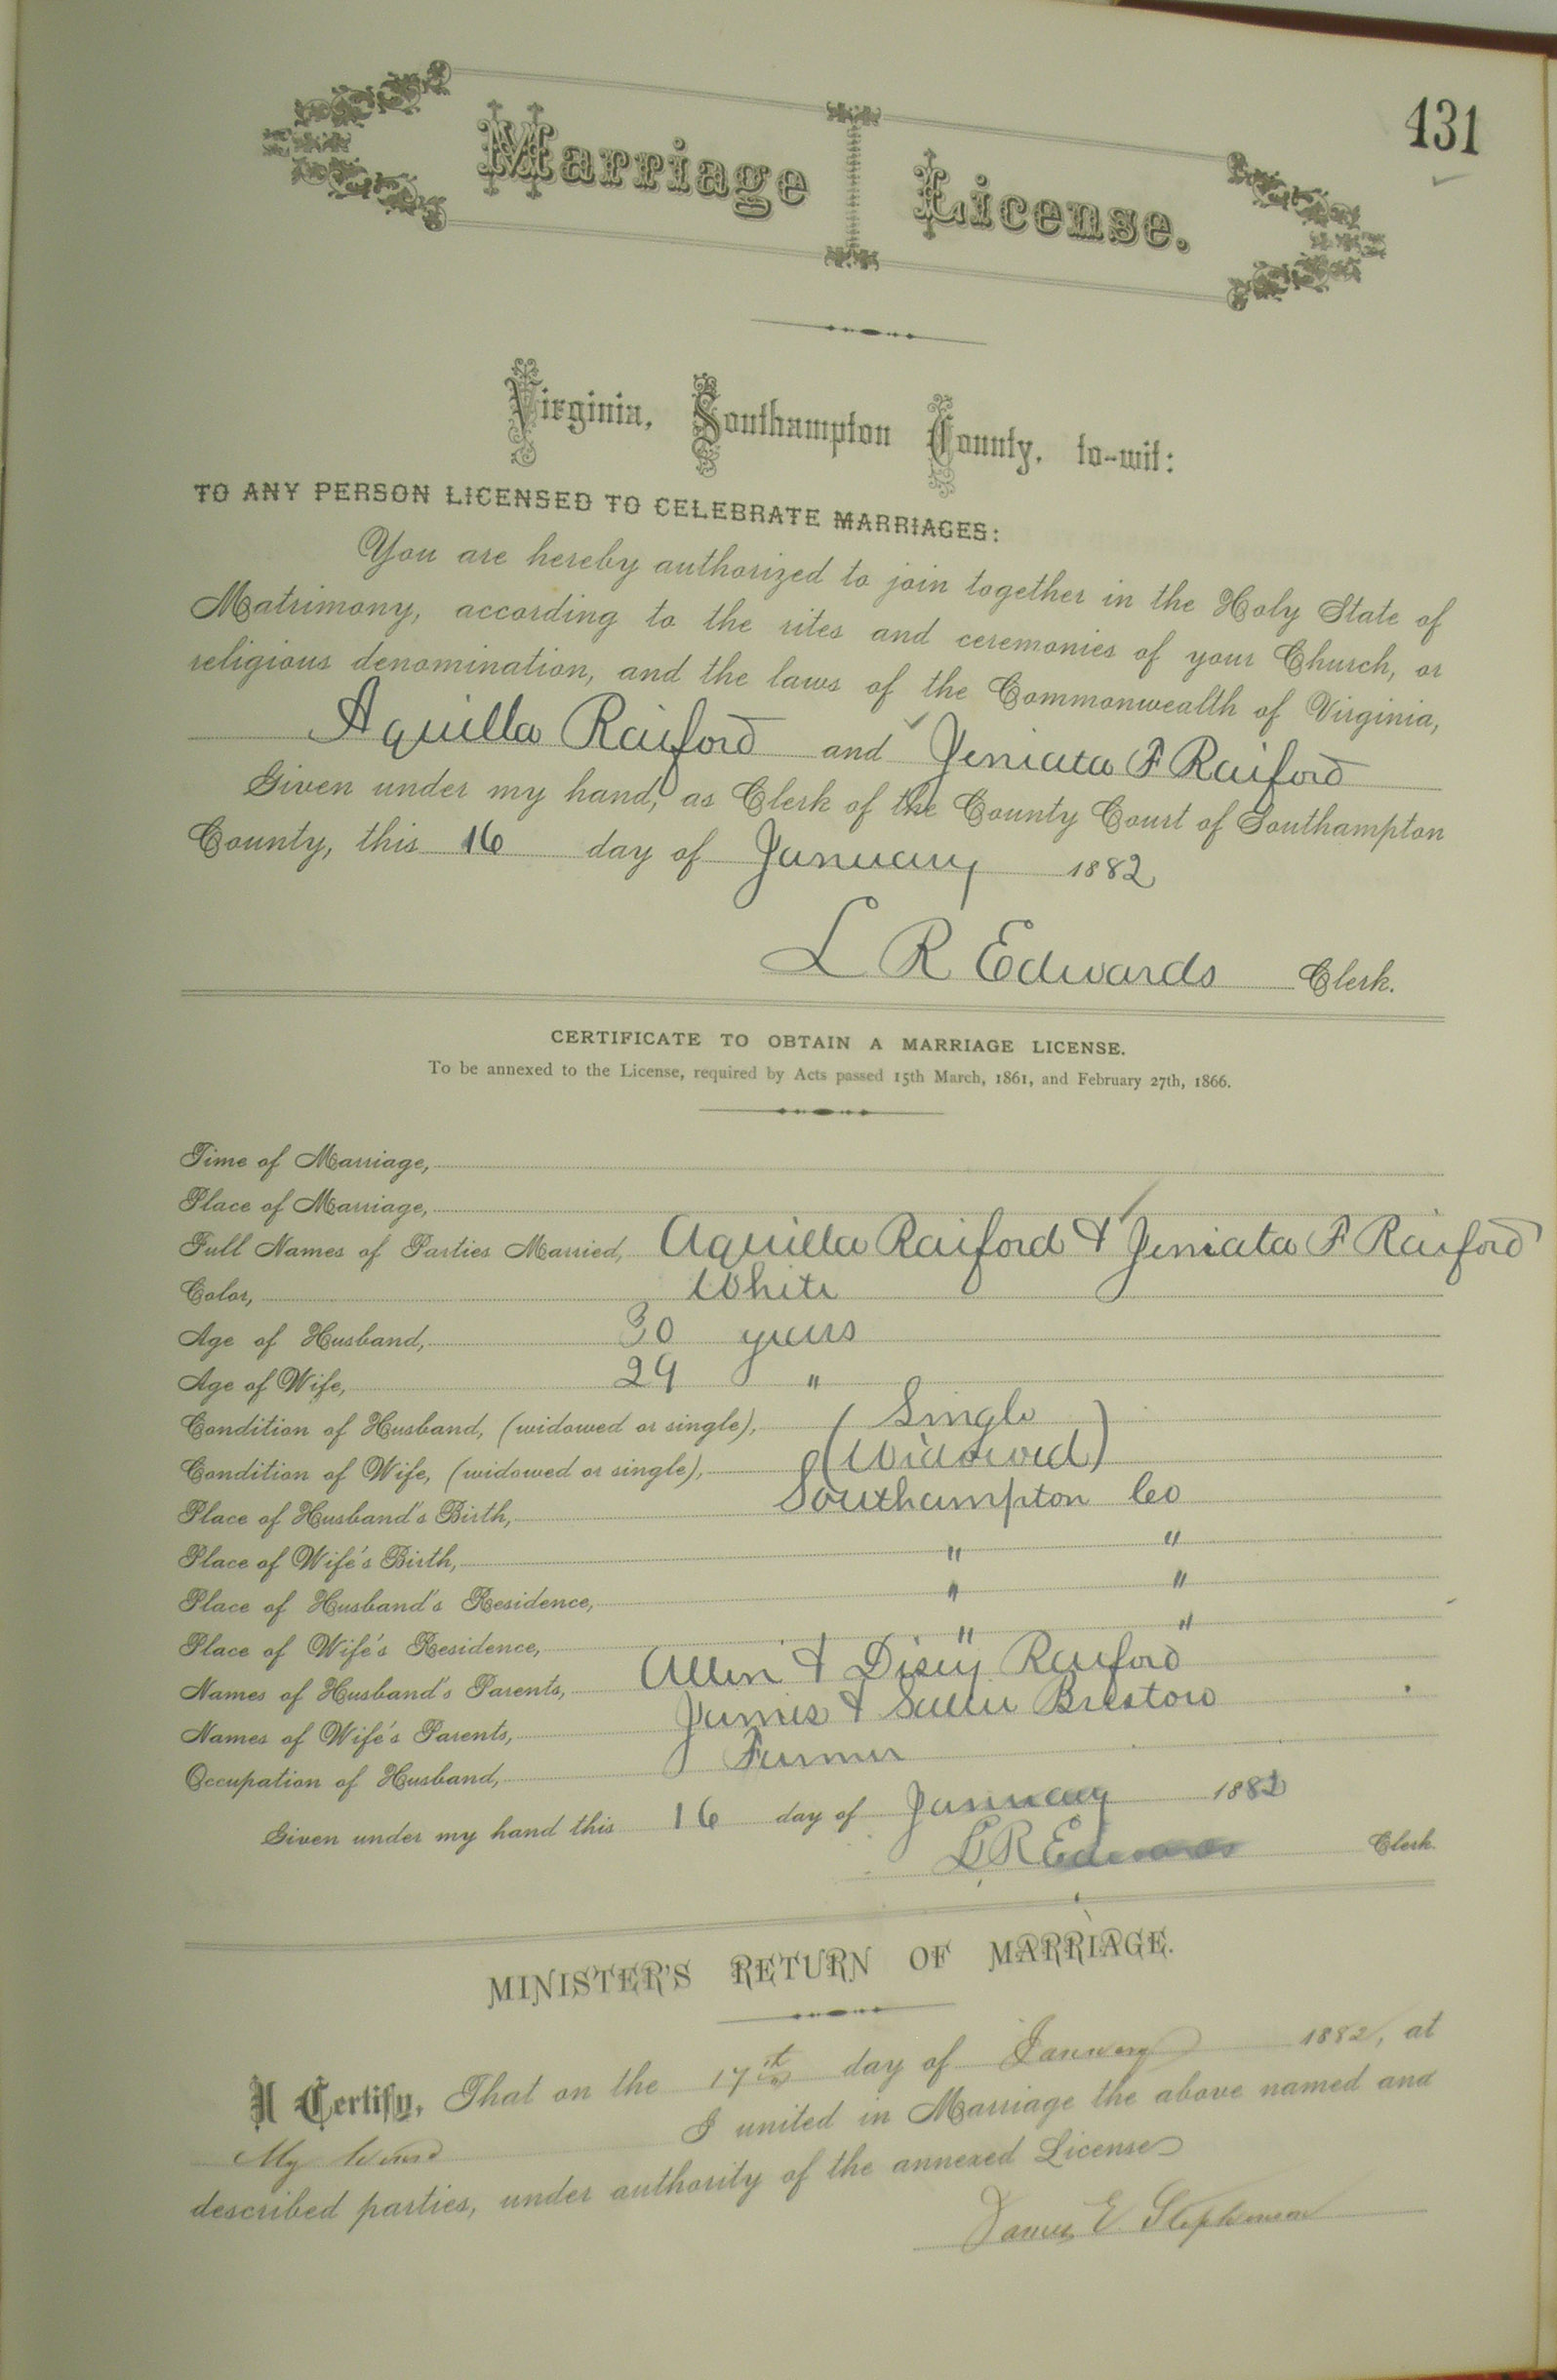 431
Marriage License.
Virginia, Southampton County, to-wit:
TO ANY PERSON LICENSED TO CELEBRATE MARRIAGES:
You are hereby authorized to join together in the Holy State of
Matrimony, according to the rites and ceremonies of your Church, or
religious denomination, and the laws of the Commonwealth of Virginia,
Aquilla Raiford and Jeniata F Raiford
Given under my hand, as Clerk of the County Court of Southampton
County, this 16 day of January 1882
L R Edwards Clerk.
CERTIFICATE TO OBTAIN A MARRIAGE LICENSE.
To be annexed to the License, required by Acts passed 15th March, 1861, and February 27th, 1866.
Time of Marriage,
Place of Marriage,
Full Names of Parties Married, Aquilla Raiford & Jeniata F Raiford
Color, White
Age of Husband, 30 years
Age of Wife, 29 "
Condition of Husband, (widowed or single), (Single
Condition of Wife, (widowed or single), (Widowed)
Place of Husband's Birth, Southampton Co
Place of Wife's Birth, " "
Place of Husband's Residence, " "
Place of Wife's Residence, " "
Names of Husband's Parents, Allen & Raiford
Names of Wife's Parents, James & Sallie Bristow
Occupation of Husband, Farmer
Given under my hand this 16 day of January 1882
L R Edwards Clerk.
MINISTER'S RETURN OF MARRIAGE.
I Certify, That on the 17th day of January 1882, at
My I united in Marriage the above named and
described parties, under authority of the annexed License
James E. Stephenson